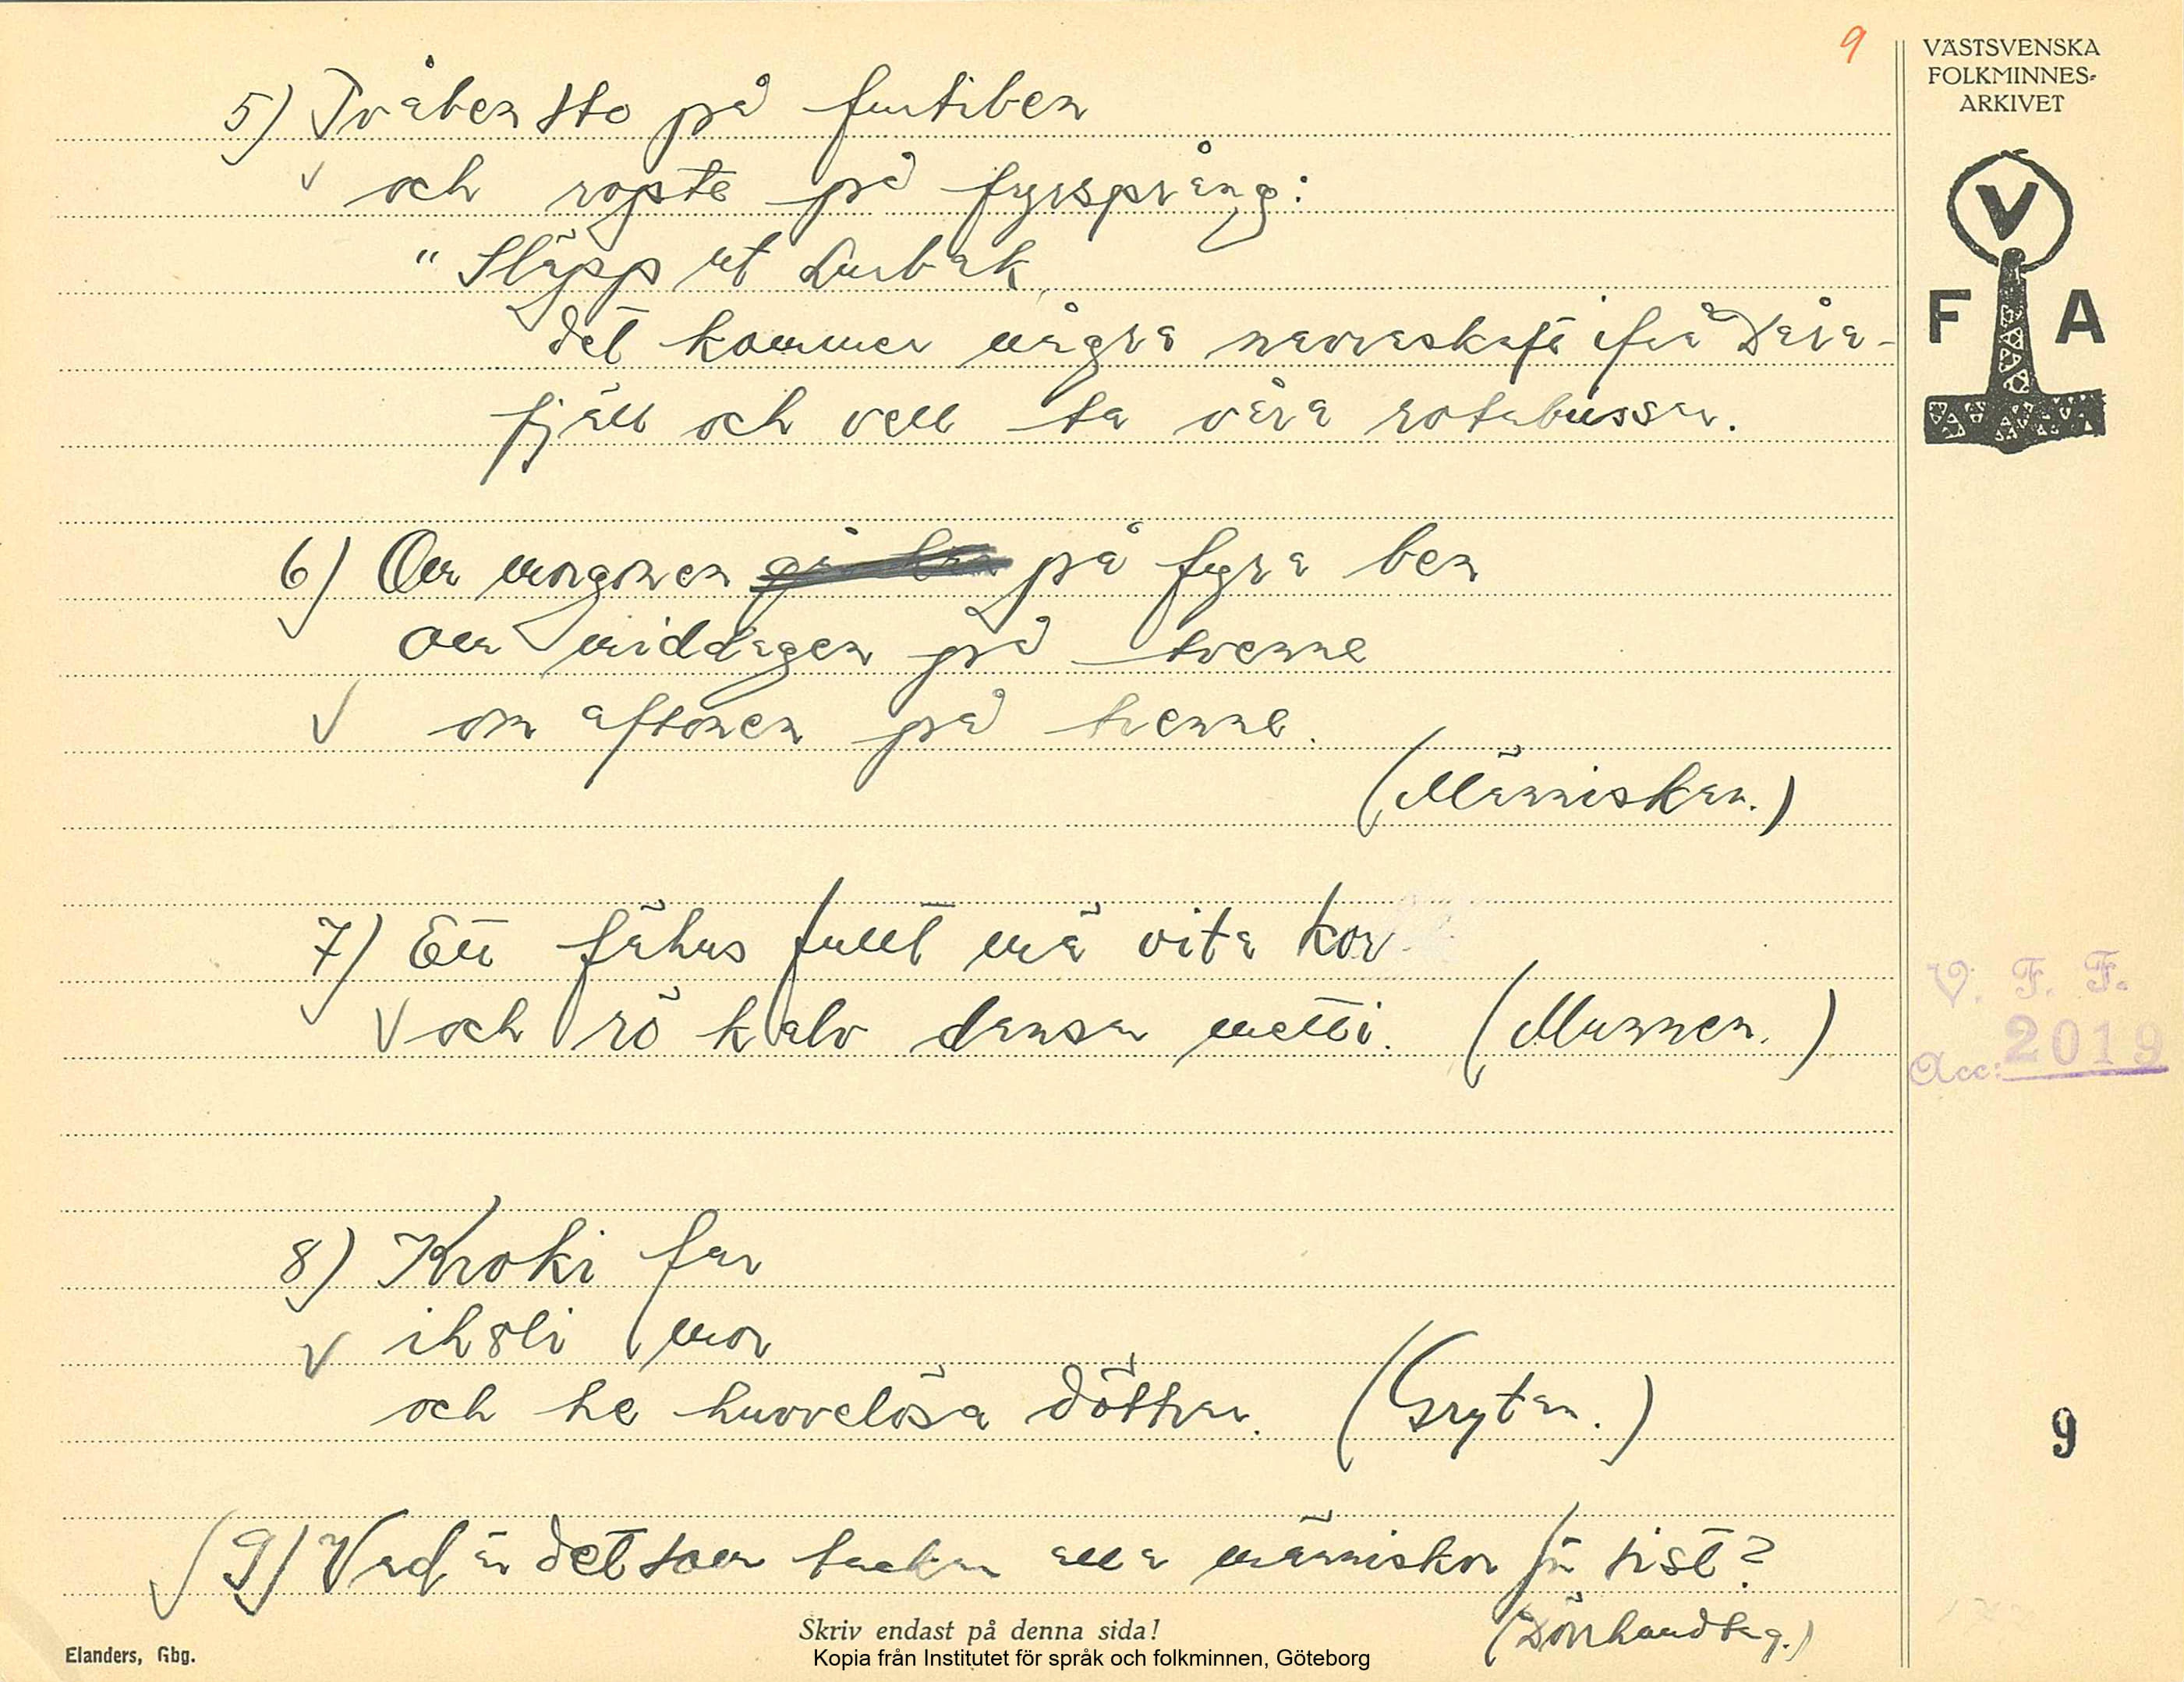 9
VÄSTSVENSKA
FOLKMINNES-
ARKIVET
V
F A
5) Tvåben sto på furtiben
och ropte på fyrspräng:
"Släpp ut Lurbak
det kommer några ifrå Dåra-
fjäll och vell ta våra rotabussar.
6) Om morgonen på fyra ben
om middagen på tvenne
om aftonen på trenne.
(Människan.)
7) Ett fähus fullt mä vita kor
och rö kalv dansar metti. (Munnen.)
V. F. F.
Acc: 2019
8) Kroki far
ihåli mor
och tre huvvelösa döttrar. (Grytan.)
9
9) Vad är det som tackar alla människor för sist?
(Dörrhandtag.)
Skriv endast på denna sida!
Elanders, Gbg.
Kopia från Institutet för språk och folkminnen, Göteborg